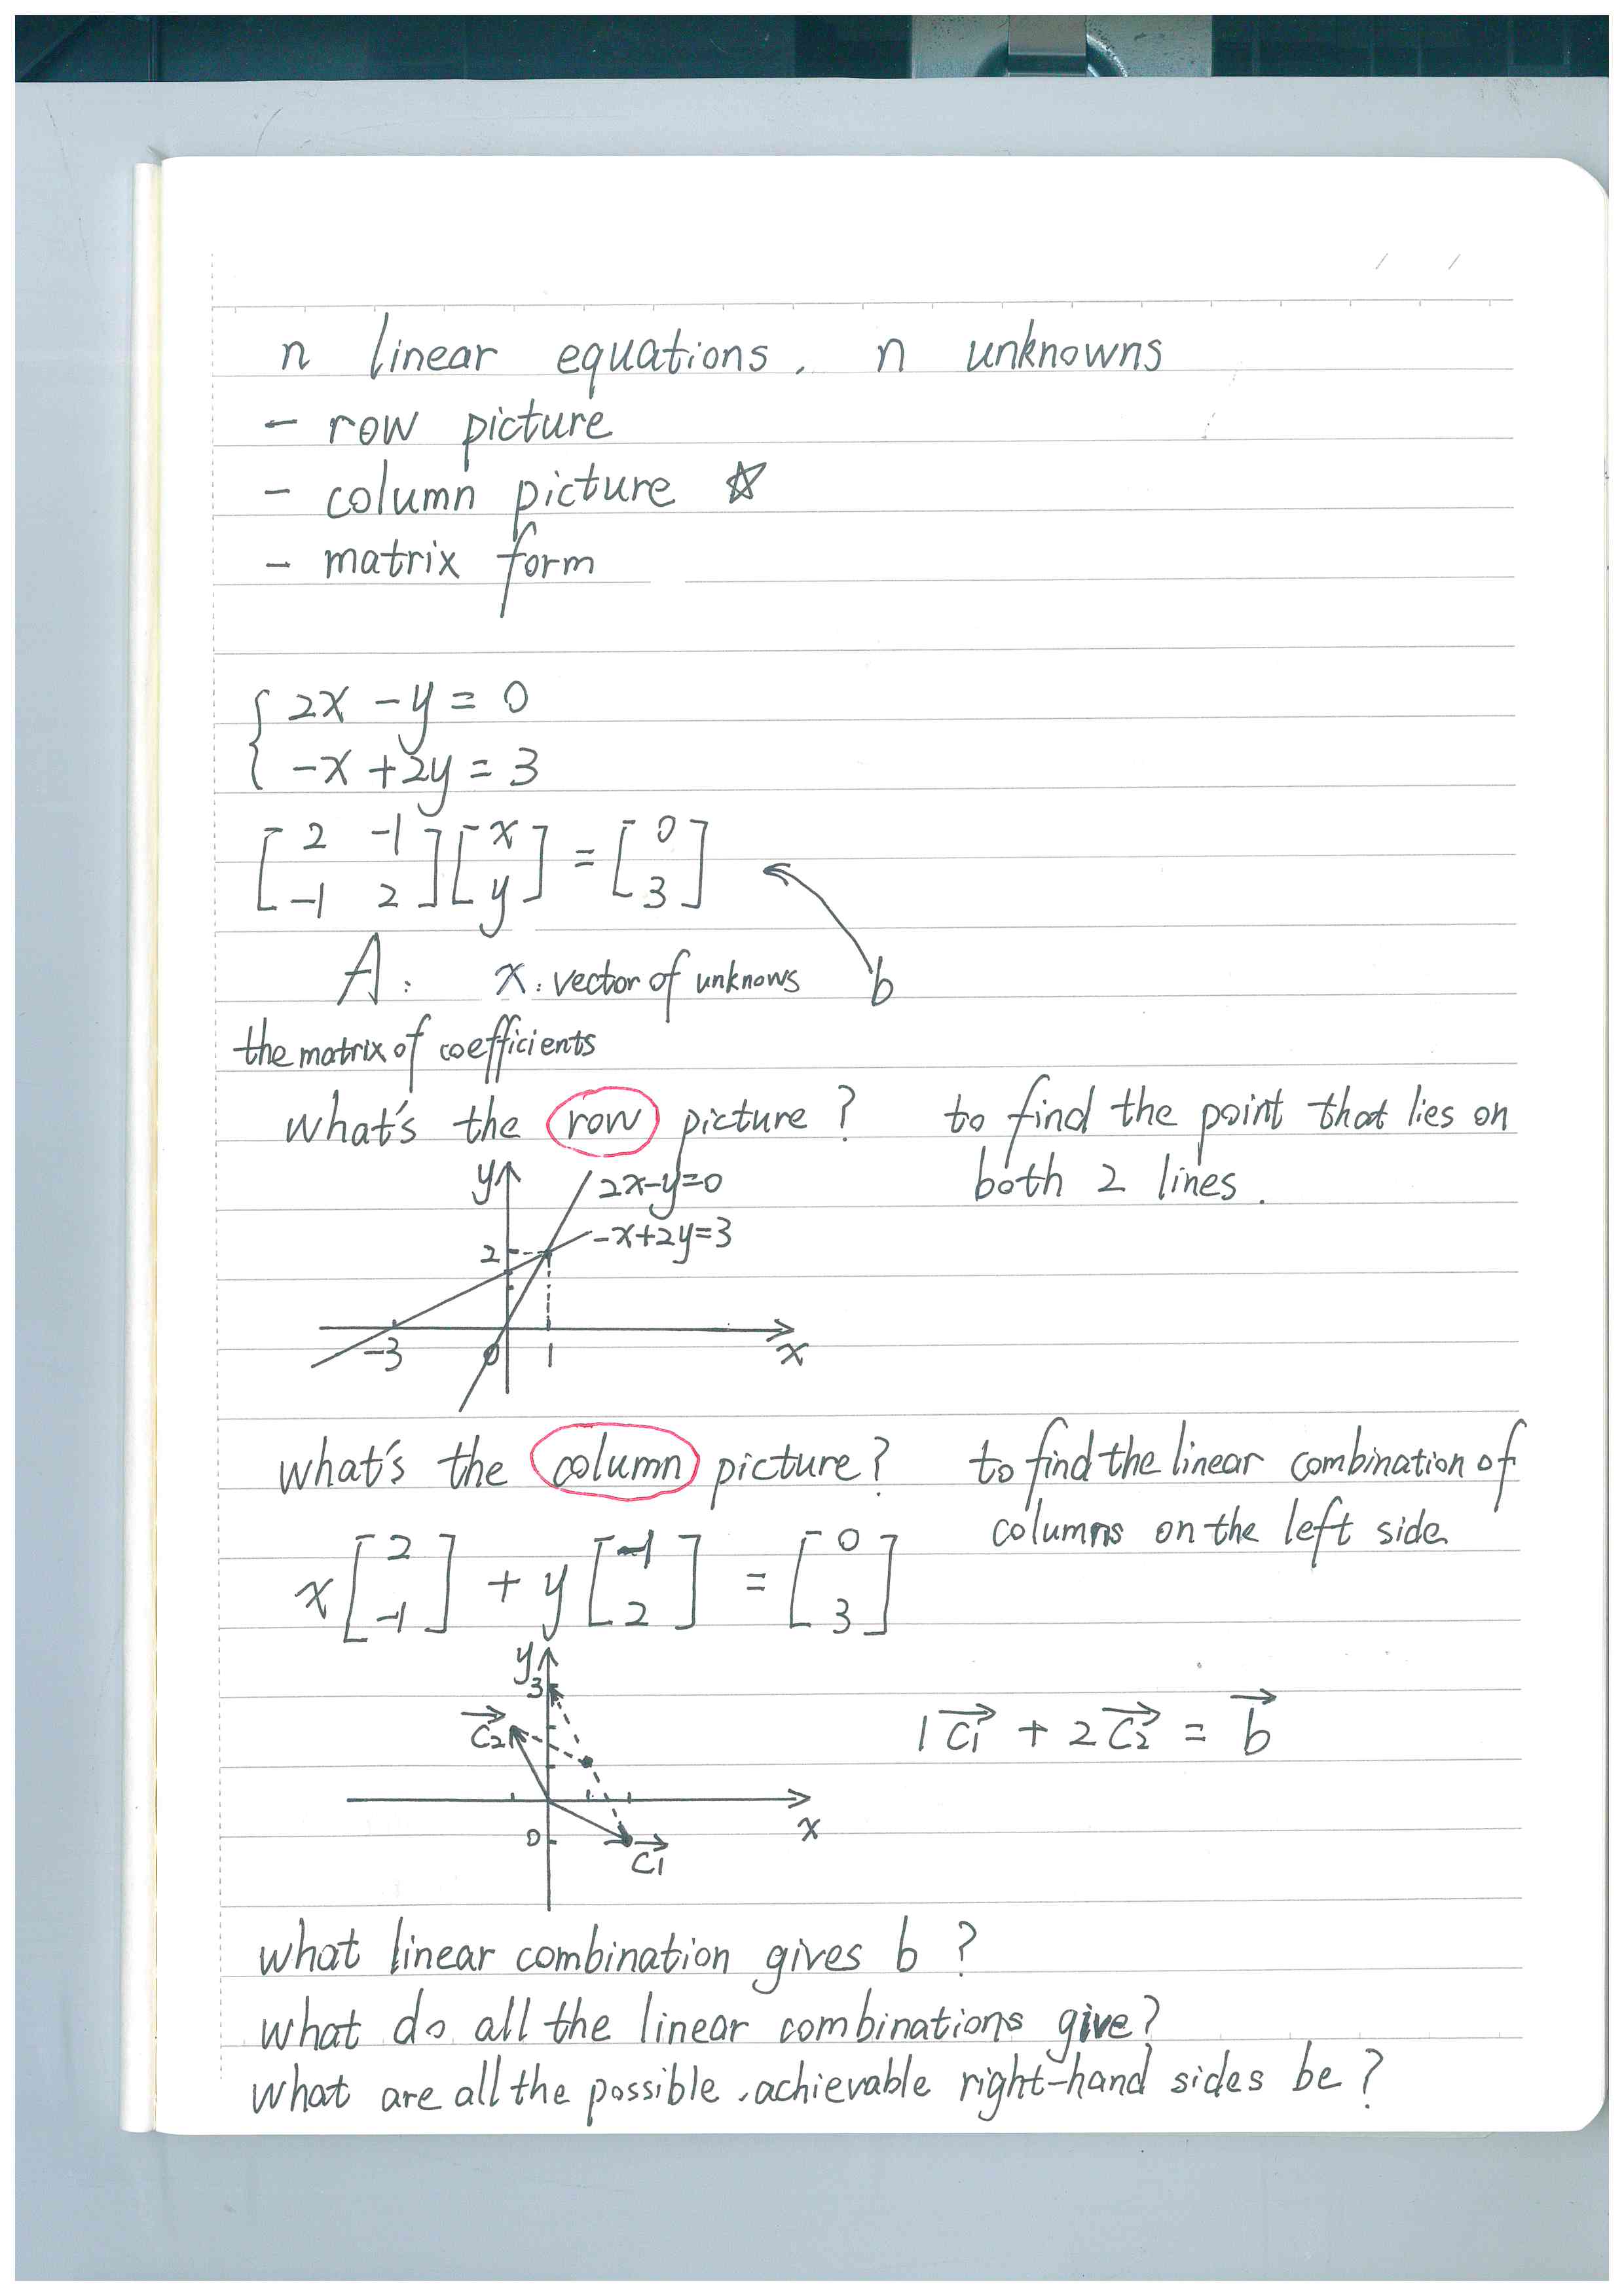 n linear equations, n unknowns
- row picture
- column picture ☆
- matrix form
{ 2x - y = 0
-x + 2y = 3
[2 -1; -1 2] [x; y] = [0; 3]
A: x: vector of unknows b
the matrix of coefficients
what's the row picture? to find the point that lies on
both 2 lines.
y
2x-y=0
-x+2y=3
2
-3 0 1 x
what's the column picture? to find the linear combination of
columns on the left side
x [2; -1] + y [-1; 2] = [0; 3]
y
3
c2
1c1 + 2c2 = b
x
0
c1
what linear combination gives b?
what do all the linear combinations give?
what are all the possible, achievable right-hand sides be?